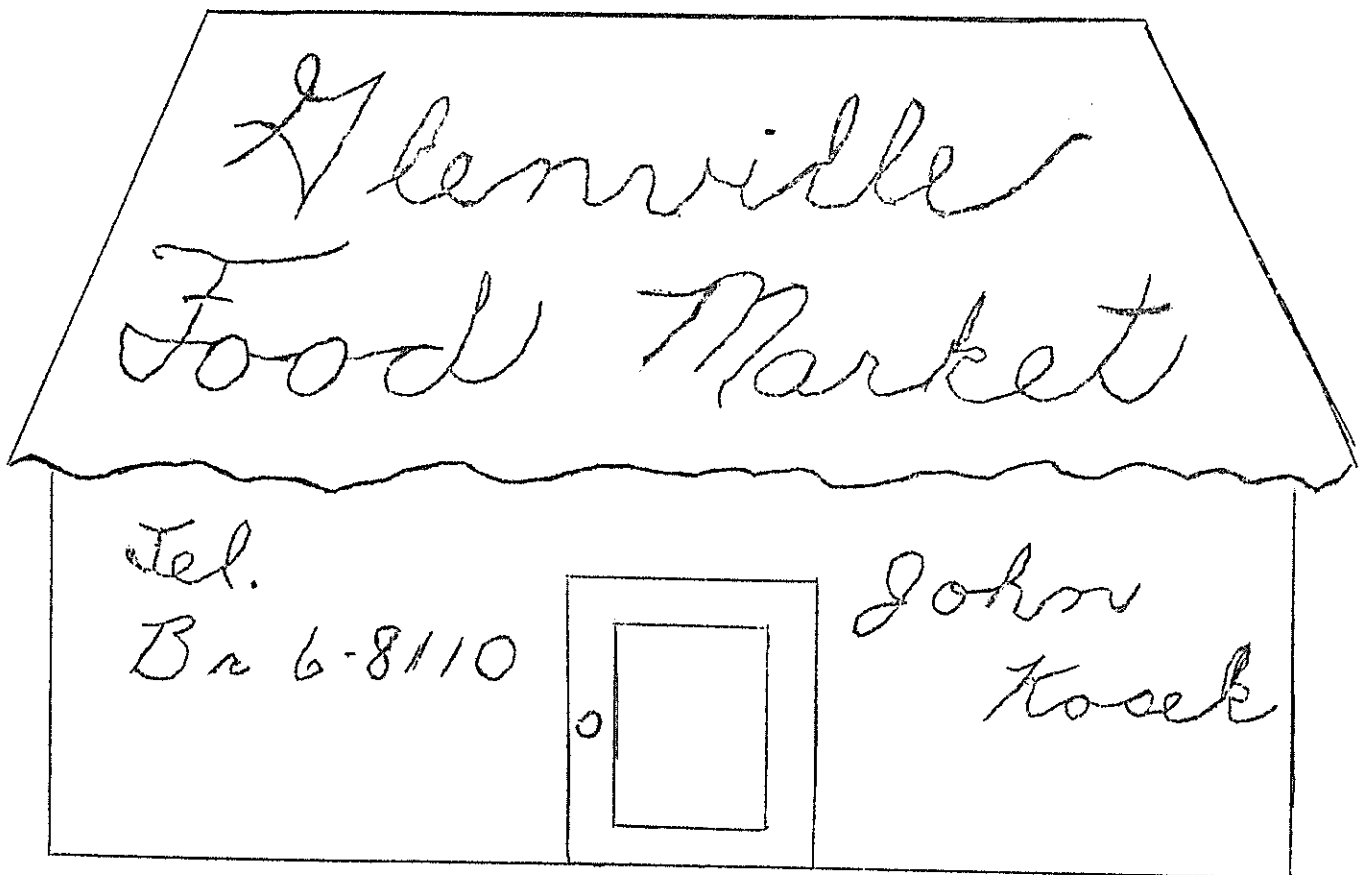 Glenville
Food Market
Tel.
Br 6-8110
John